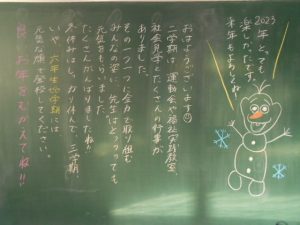 2023年とっても
楽しかったです。
来年もよろしくね!
おはようございます
二学期は、運動会や福祉実践教室、
社会見学とたくさんの行事が
ありました。
その一つ一つに全力で取り組む
みんなの姿に、先生はとってっても
元気をもらいました。
たくさんがんばりましたね!!
冬休みはしっかり休んで、三学期、
いや、六年生0学期には
元気な顔で登校してください。
良いお年をむかえてね!!